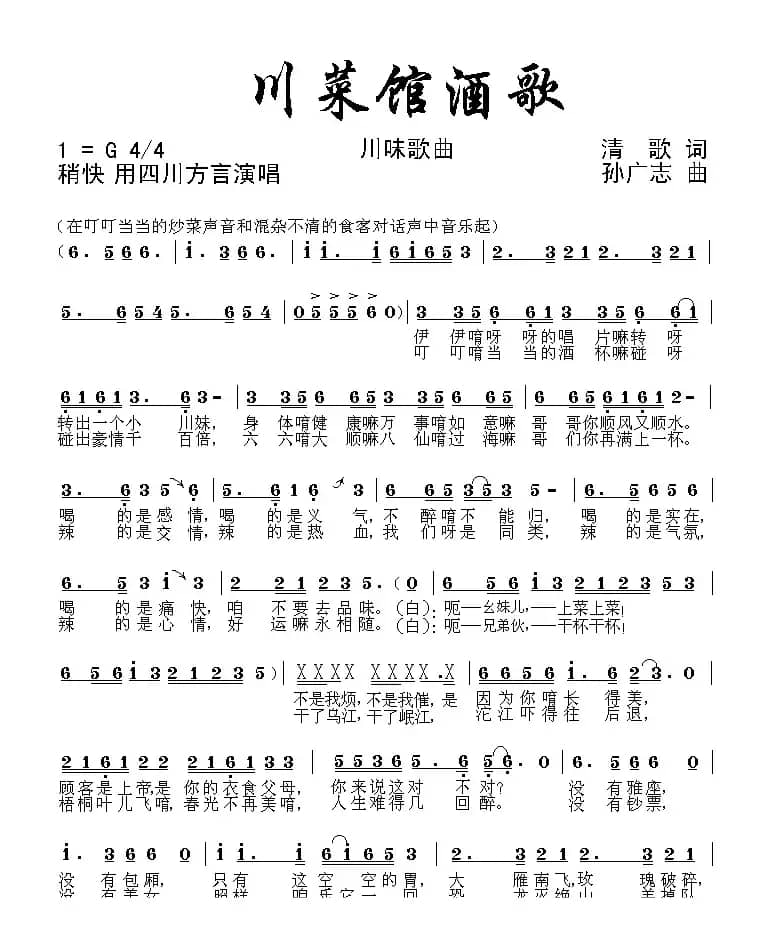 川菜馆酒歌
1 = G 4/4 川味歌曲 清 歌 词
稍快 用四川方言演唱 孙广志 曲
(在叮叮当当的炒菜声音和混杂不清的食客对话声中音乐起)
(6. 5 6 6. | i. 3 6 6. | i i. i 6 i 6 5 3 | 2. 3 2 1 2. 3 2 1 |
5. 6 5 4 5. 6 5 4 | 0 5 5 5 6 0) | 3 3 5 6 6 1 3 3 5 6 6 1 |
伊 伊唷呀 呀的唱 片嘛转 呀
叮 叮唷当 当的酒 杯嘛碰 呀
6 1 6 1 3. 6 3- | 3 3 5 6 6 5 3 5 6 6 5 | 6 6 5 6 1 6 1 2- |
转出一个小 川妹, 身 体唷健 康嘛万 事唷如 意嘛 哥 哥你顺风又顺水。
碰出豪情千 百倍, 六 六唷大 顺嘛八 仙唷过 海嘛 哥 们你再满上一杯。
3. 6 3 5 6 | 5. 6 1 6 3 | 6 6 5 3 5 3 5- | 6. 5 6 5 6 |
喝 的是感 情,喝 的是义 气,不 醉唷不 能归, 喝 的是实在,
辣 的是交 情,辣 的是热 血,我 们呀是 同类, 辣 的是气氛,
6. 5 3 i 3 | 2 2 1 2 3 5. (0 | 6 5 6 i 3 2 1 2 3 5 3 |
喝 的是痛 快, 咱 不 要去品味。(白): 呃—幺妹儿,—上菜上菜!
辣 的是心 情, 好 运嘛永相随。(白): 呃—兄弟伙,—干杯干杯!
6 5 6 i 3 2 1 2 3 5) | X X X X X X X. X | 6 6 5 6 i. 6 2 3. |
不是我烦,不是我催, 是 因为你唷长 得美,
干了乌江,干了岷江, 沱江吓得往 后退,
2 1 6 1 2 2 2 1 6 1 3 3 | 5 5 3 6 5. 6 5 6. 0 | 6. 6 5 6 0 |
顾客是上帝,是 你的衣食父母, 你来说这对 不对? 没 有雅座,
梧桐叶儿飞唷, 春光不再美唷, 人生难得几 回醉。 没 有钞票,
i. 3 6 6 0 | i i. i 6 i 6 5 3 | 2. 3 2 1 2. 3 2 1 |
没 有包厢, 只有 这空 空的胃, 大 雁南飞,玫 瑰破碎,